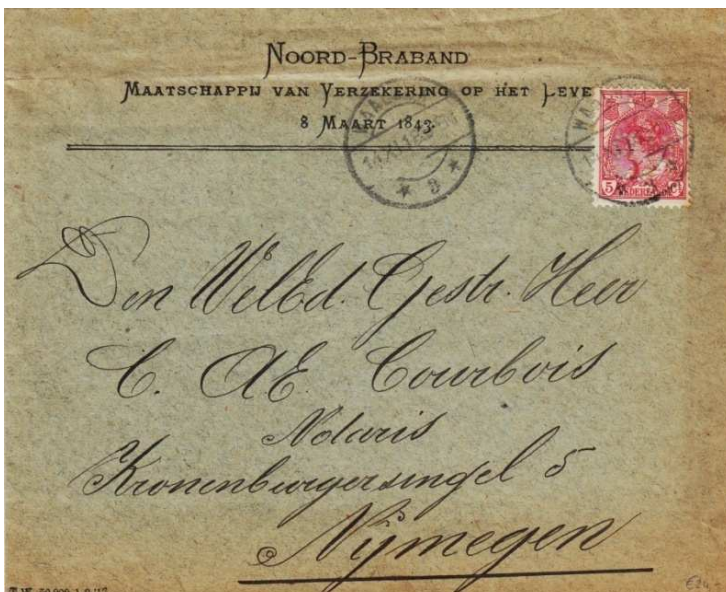 Noord-Braband
Maatschappij van Verzekering op het Leve
8 Maart 1843.
5
Den WelEd. Gestr. Heer
C. AE Courbois
Notaris
Kronenburgersingel 5
Nijmegen